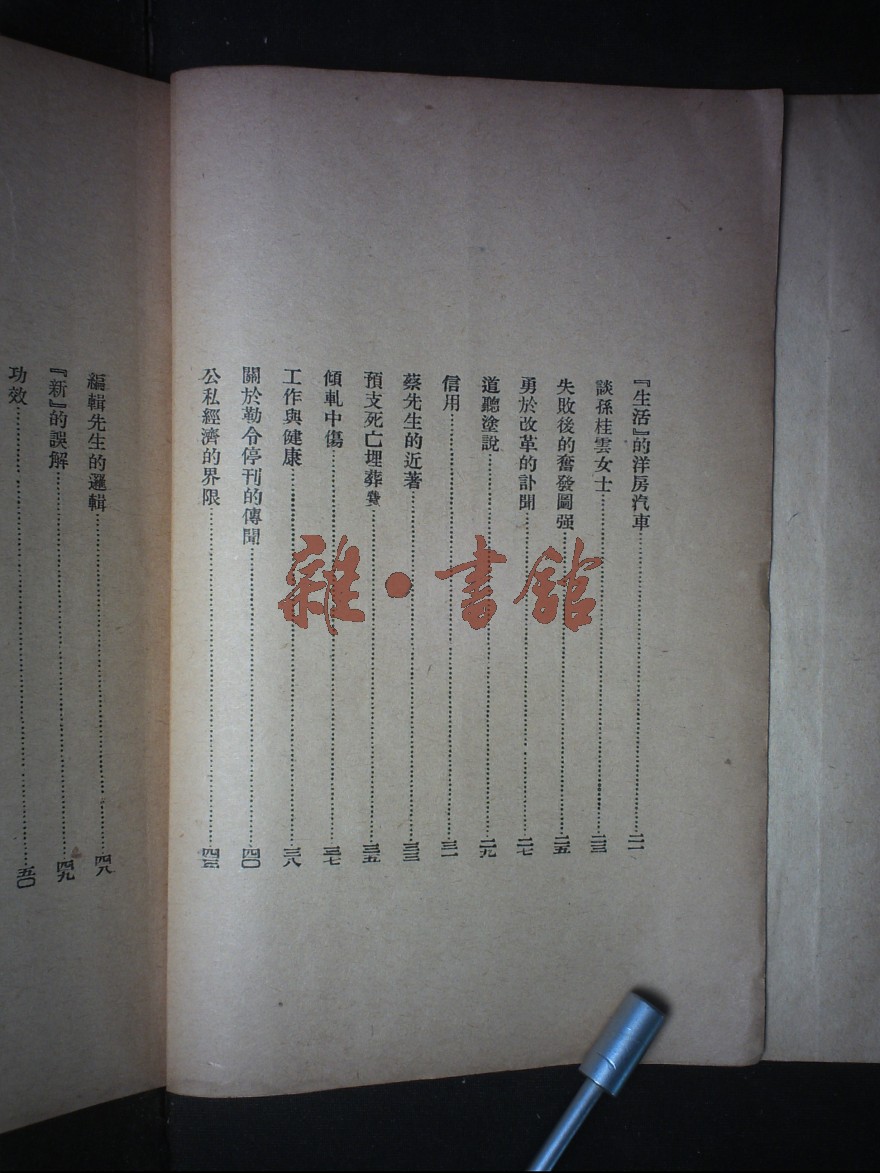 『生活』的洋房汽車……二一
談孫桂雲女士……二三
失敗後的奮發圖强……二五
勇於改革的訃聞……二七
道聽塗說……二九
信用……三一
蔡先生的近著……三三
預支死亡埋葬費……三五
傾軋中傷……三七
工作與健康……三八
關於勒令停刊的傳聞……四〇
公私經濟的界限……四三
編輯先生的邏輯……四八
『新』的誤解……四九
功效……五〇
雜·書館